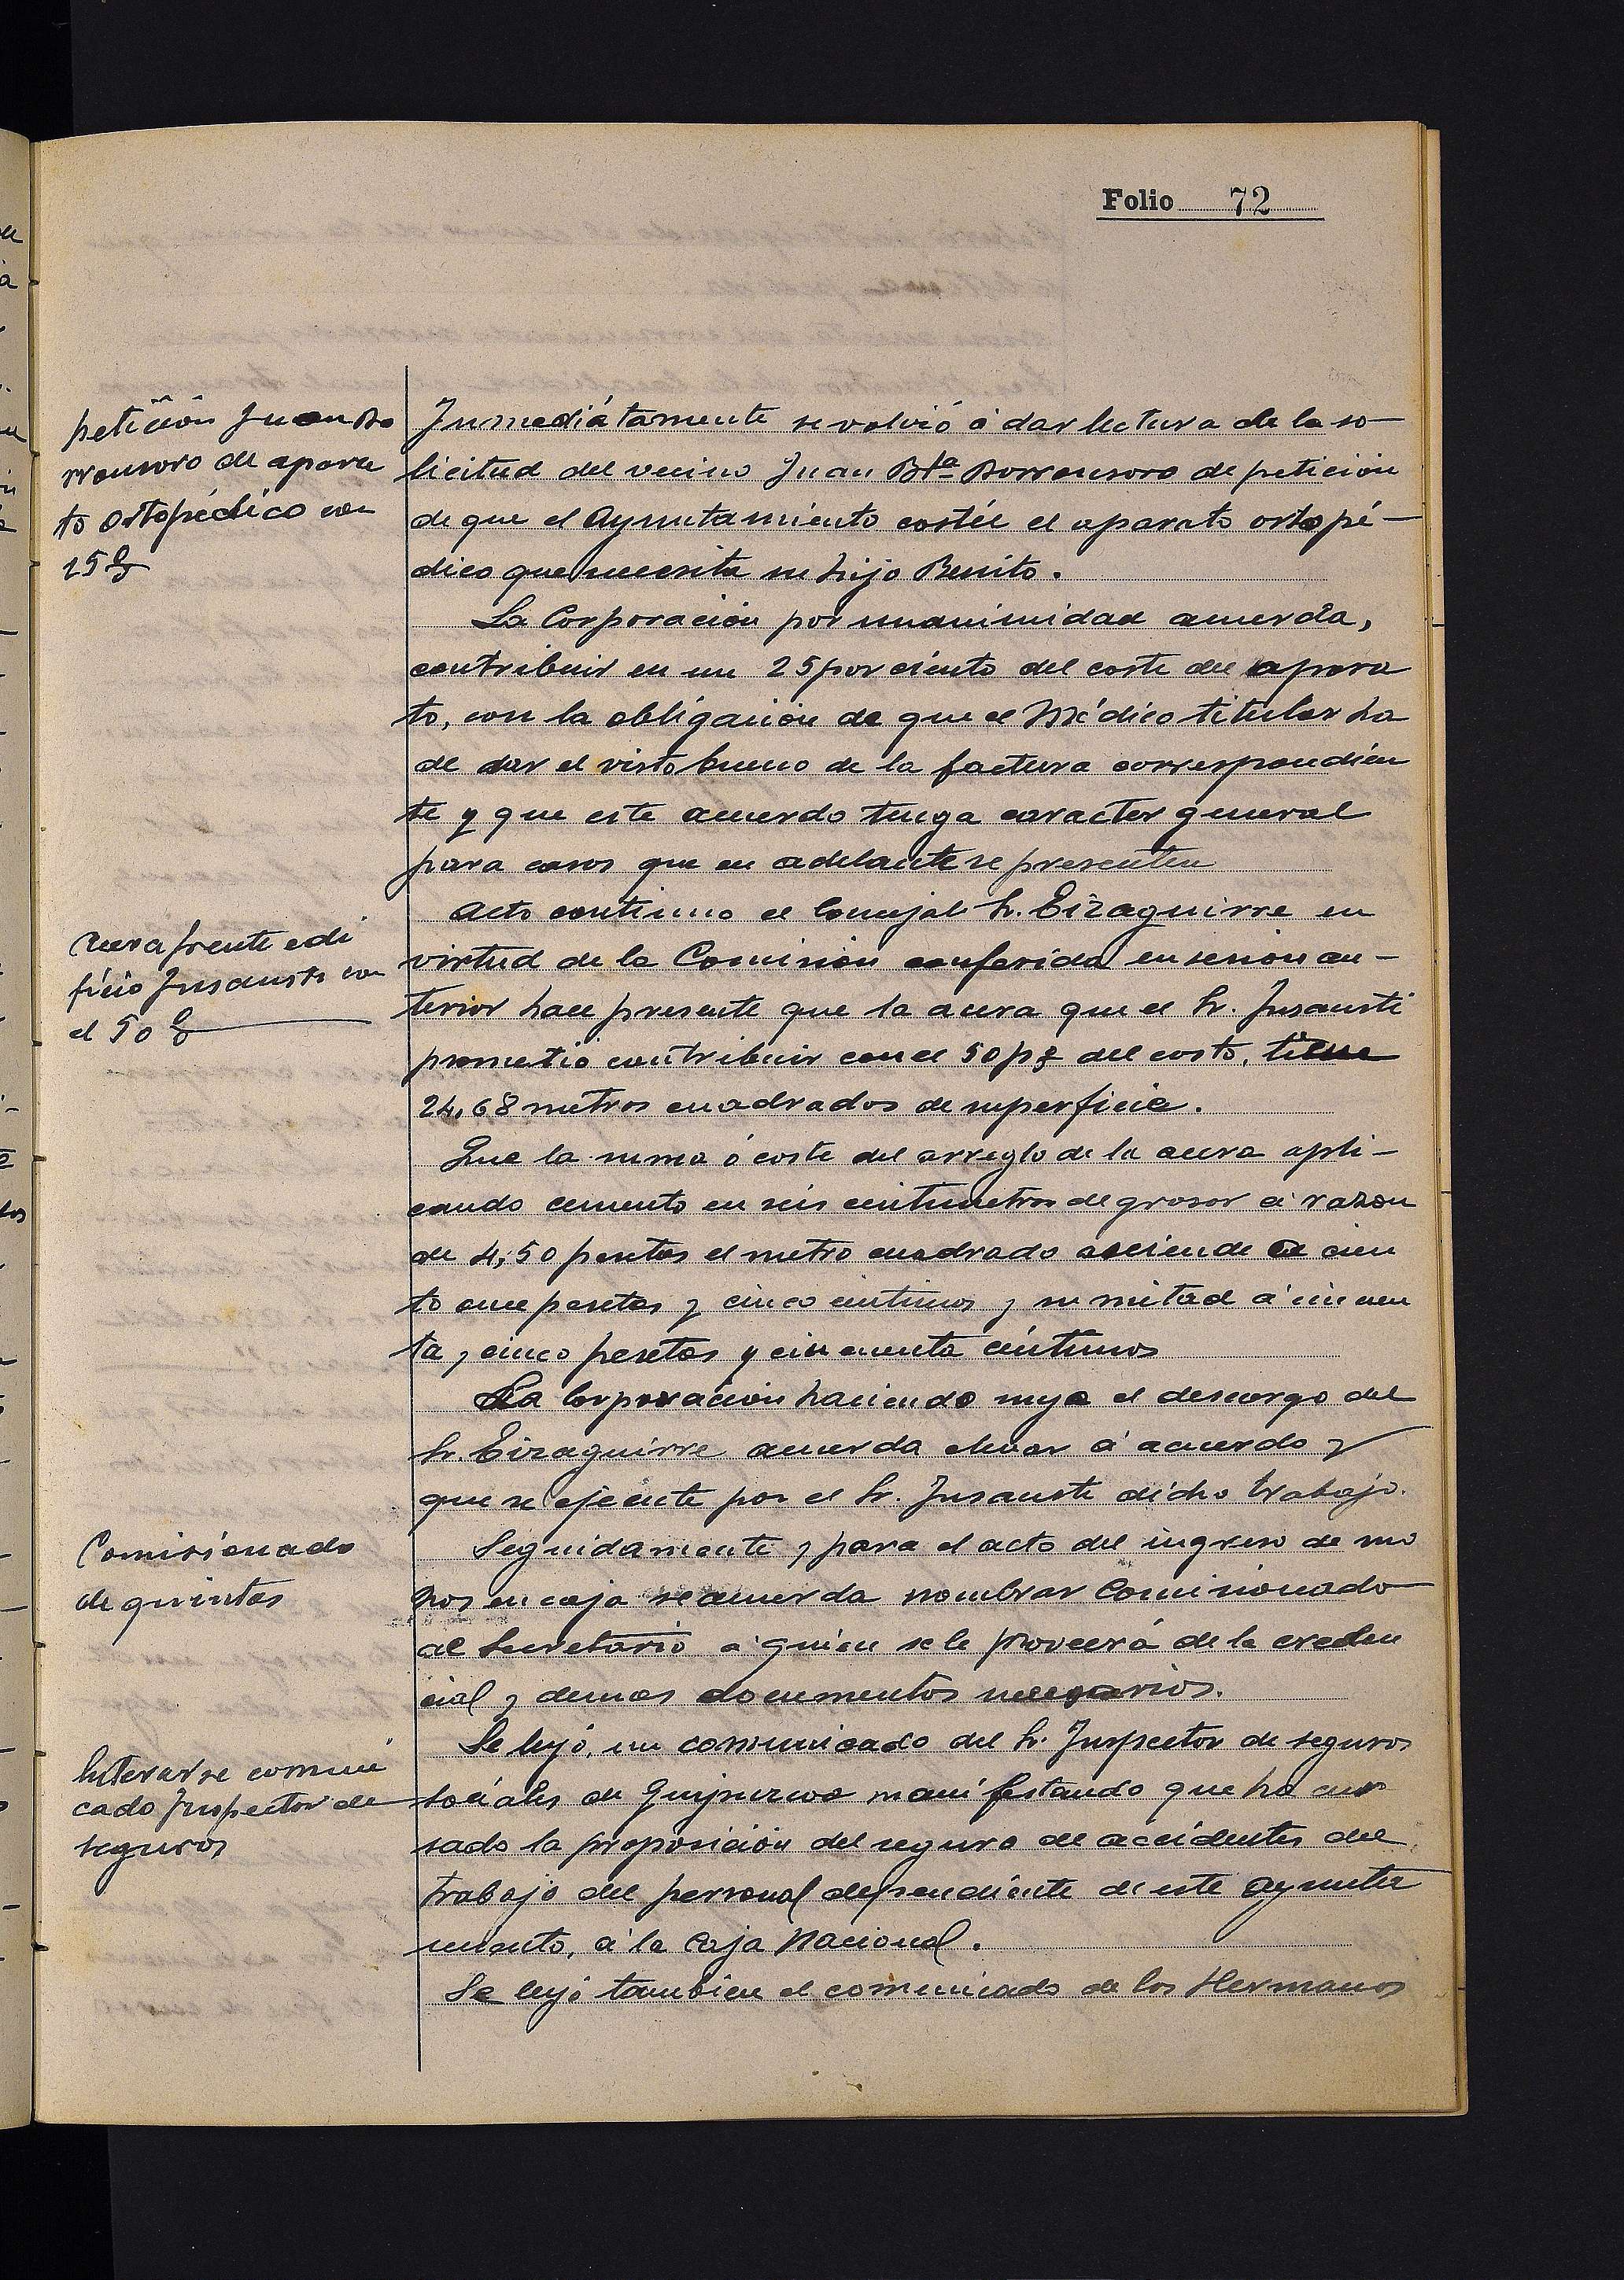 Folio 72
petición Juan Do
rronsoro de apara
to ortopédico con
25 %
Inmediátamente se volvió á dar lectura de la so-
licitud del vecino Juan Bta Dorronsoro de petición
de que el Ayuntamiento costée el aparato ortopé-
dico que necesita su hijo Benito.
La Corporación por unanimidad acuerda,
contribuir en un 25 por ciento del coste del apara
to, con la obligación de que el Médico titular ha
de dar el visto bueno de la factura correspondien
te y que este acuerdo tenga caracter general
para casos que en adelante se presenten
Acera frente edi
ficio Insausti con
el 50 %
Acto continuo el Concejal Sr. Eizaguirre en
virtud de la Comisión conferida en sesion an-
terior hace presente que la acera que el Sr. Insausti
prometió contribuir con el 50 p% del costo, tiene
24,68 metros cuadrados de superficie.
Que la suma ó coste del arreglo de la acera apli-
cando cemento en seis centimetros de grosor á razon
de 4,50 pesetas el metro cuadrado asciende a cien
to once pesetas y cinco centimos y su mitad á cincuen
ta y cinco pesetas y cincuenta centimos
La Corporación haciendo suyo el descargo del
Sr. Eizaguirre acuerda elevar á acuerdo y
que se ejecute por el Sr. Insausti dicho trabajo.
Comisionado
de quintas
Seguidamente y para el acto del ingreso de mo
zos en caja se acuerda nombrar Comisionado
al Secretario á quien se le proveerá de la creden
cial y demas documentos necesarios.
Enterarse comuni
cado Inspector de
seguros
Se leyó, un comunicado del Sr. Inspector de seguros
sociales de Guipuzcoa manifestando que ha cur
sado la proposición del seguro de accidentes del
trabajo del personal dependiente de este Ayunta
miento, á la Caja Nacional.
Se leyó tambien el comunicado de los Hermanos